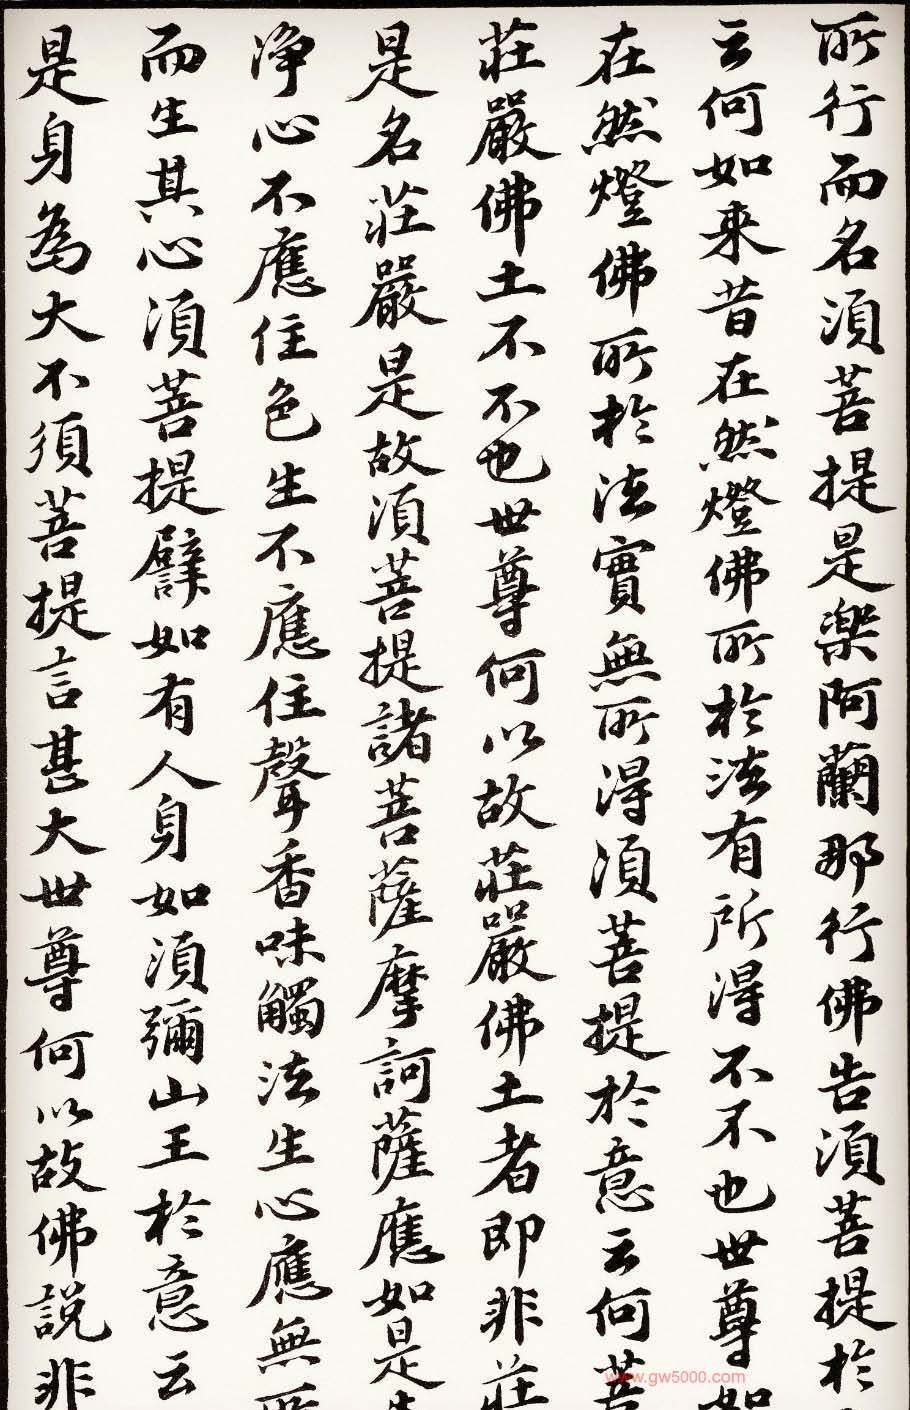 所行而名須菩提是樂阿蘭那行佛告須菩提於
云何如来昔在然燈佛所於法有所得不不也世尊如
在然燈佛所於法實無所得須菩提於意云何菩
莊嚴佛土不不也世尊何以故莊嚴佛土者即非莊
是名莊嚴是故須菩提諸菩薩摩訶薩應如是生
净心不應住色生不應住聲香味觸法生心應無所
而生其心須菩提譬如有人身如須彌山王於意云
是身為大不須菩提言甚大世尊何以故佛説非
www.gw5000.com